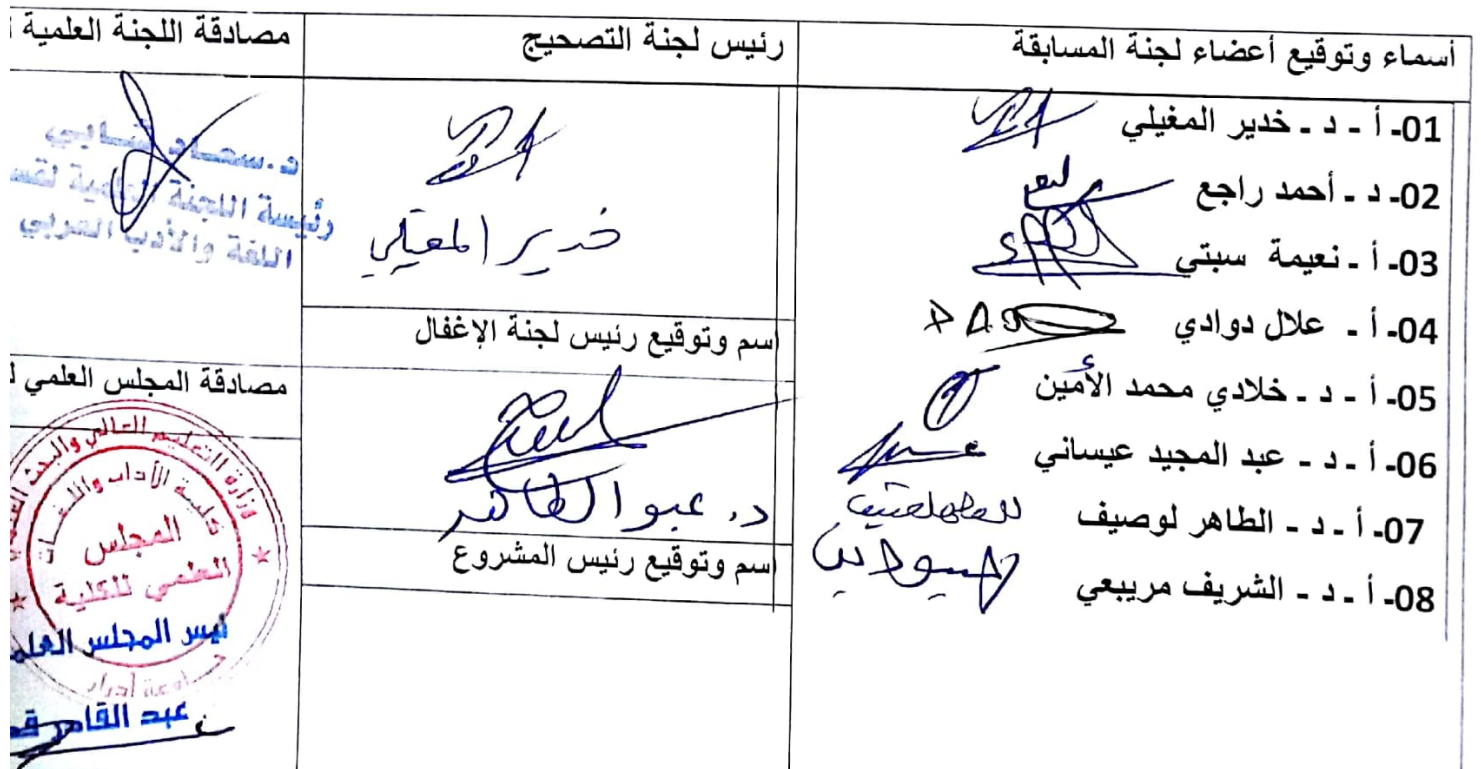 أسماء وتوقيع أعضاء لجنة المسابقة
01- أ - د - خدير المغيلي
02- د - أحمد راجع
03- أ - نعيمة سبتي
04- أ - علال دوادي
05- أ - د - خلادي محمد الأمين
06- أ - د - عبد المجيد عيساني
07- أ - د - الطاهر لوصيف
08- أ - د - الشريف مريبعي
رئيس لجنة التصحيح
خدير المغيلي
اسم وتوقيع رئيس لجنة الإغفال
اسم وتوقيع رئيس المشروع
مصادقة اللجنة العلمية
رئيسة اللجنة العلمية لقسم
اللغة والأدب العربي
مصادقة المجلس العلمي
وزارة التعليم العالي والبحث
كلية الآداب واللغات
المجلس
العلمي للكلية
جامعة أدرار
ئيس المجلس العلم
عبد القادر